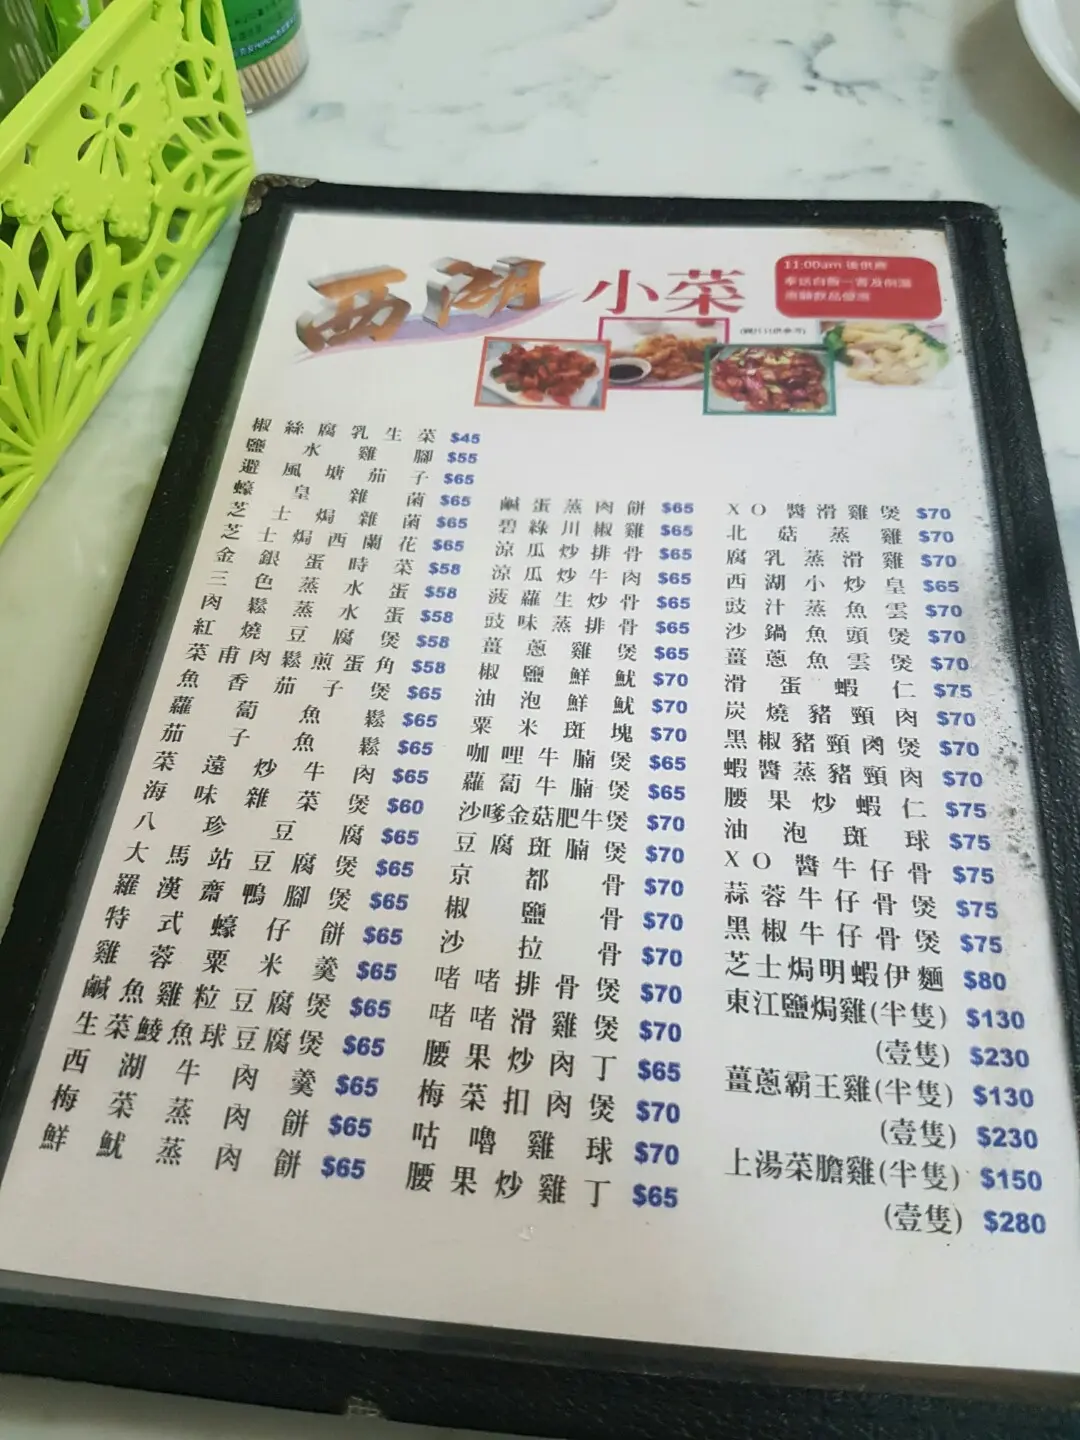 西湖 小菜
11:00am 後供應
奉送白飯一壺及例湯
(圖片只供參考)
椒絲腐乳生菜 $45
鹽水雞腳 $55
避風塘茄子 $65
蠔皇雜菌 $65
芝士焗雜菌 $65
芝士焗西蘭花 $65
金銀蛋時菜 $58
三色蒸水蛋 $58
肉鬆蒸水蛋 $58
紅燒豆腐煲 $58
菜甫肉鬆煎蛋角 $58
魚香茄子煲 $65
蘿蔔魚鬆 $65
茄子魚鬆 $65
菜遠炒牛肉 $65
海味雜菜煲 $60
八珍豆腐 $65
大馬站豆腐煲 $65
羅漢齋鴨腳煲 $65
特式蠔仔餅 $65
雞蓉粟米羹 $65
鹹魚雞粒豆腐煲 $65
生菜鯪魚球豆腐煲 $65
西湖牛肉羹 $65
梅菜蒸肉餅 $65
鮮魷蒸肉餅 $65
鹹蛋蒸肉餅 $65
碧綠川椒雞 $65
涼瓜炒排骨 $65
涼瓜炒牛肉 $65
菠蘿生炒骨 $65
豉味蒸排骨 $65
薑蔥雞煲 $65
椒鹽鮮魷 $70
油泡鮮魷 $70
粟米斑塊 $70
咖哩牛腩煲 $65
蘿蔔牛腩煲 $65
沙嗲金菇肥牛煲 $70
豆腐斑腩煲 $70
京都骨 $70
椒鹽骨 $70
沙拉骨 $70
啫啫排骨煲 $70
啫啫滑雞煲 $70
腰果炒肉丁 $65
梅菜扣肉煲 $70
咕嚕雞球 $70
腰果炒雞丁 $65
XO醬滑雞煲 $70
北菇蒸雞 $70
腐乳蒸滑雞 $70
西湖小炒皇 $65
豉汁蒸魚雲 $70
沙鍋魚頭煲 $70
薑蔥魚雲煲 $70
滑蛋蝦仁 $75
炭燒豬頸肉 $70
黑椒豬頸肉煲 $70
蝦醬蒸豬頸肉 $70
腰果炒蝦仁 $75
油泡斑球 $75
XO醬牛仔骨 $75
蒜蓉牛仔骨煲 $75
黑椒牛仔骨煲 $75
芝士焗明蝦伊麵 $80
東江鹽焗雞(半隻) $130
(壹隻) $230
薑蔥霸王雞(半隻) $130
(壹隻) $230
上湯菜膽雞(半隻) $150
(壹隻) $280